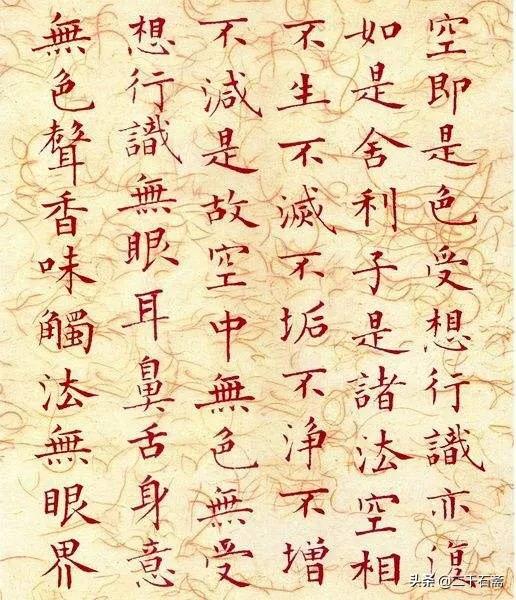 空即是色受想行識亦復
如是舍利子是諸法空相
不生不滅不垢不淨不增
不減是故空中無色無受
想行識無眼耳鼻舌身意
無色聲香味觸法無眼界
头条 @二千石斋